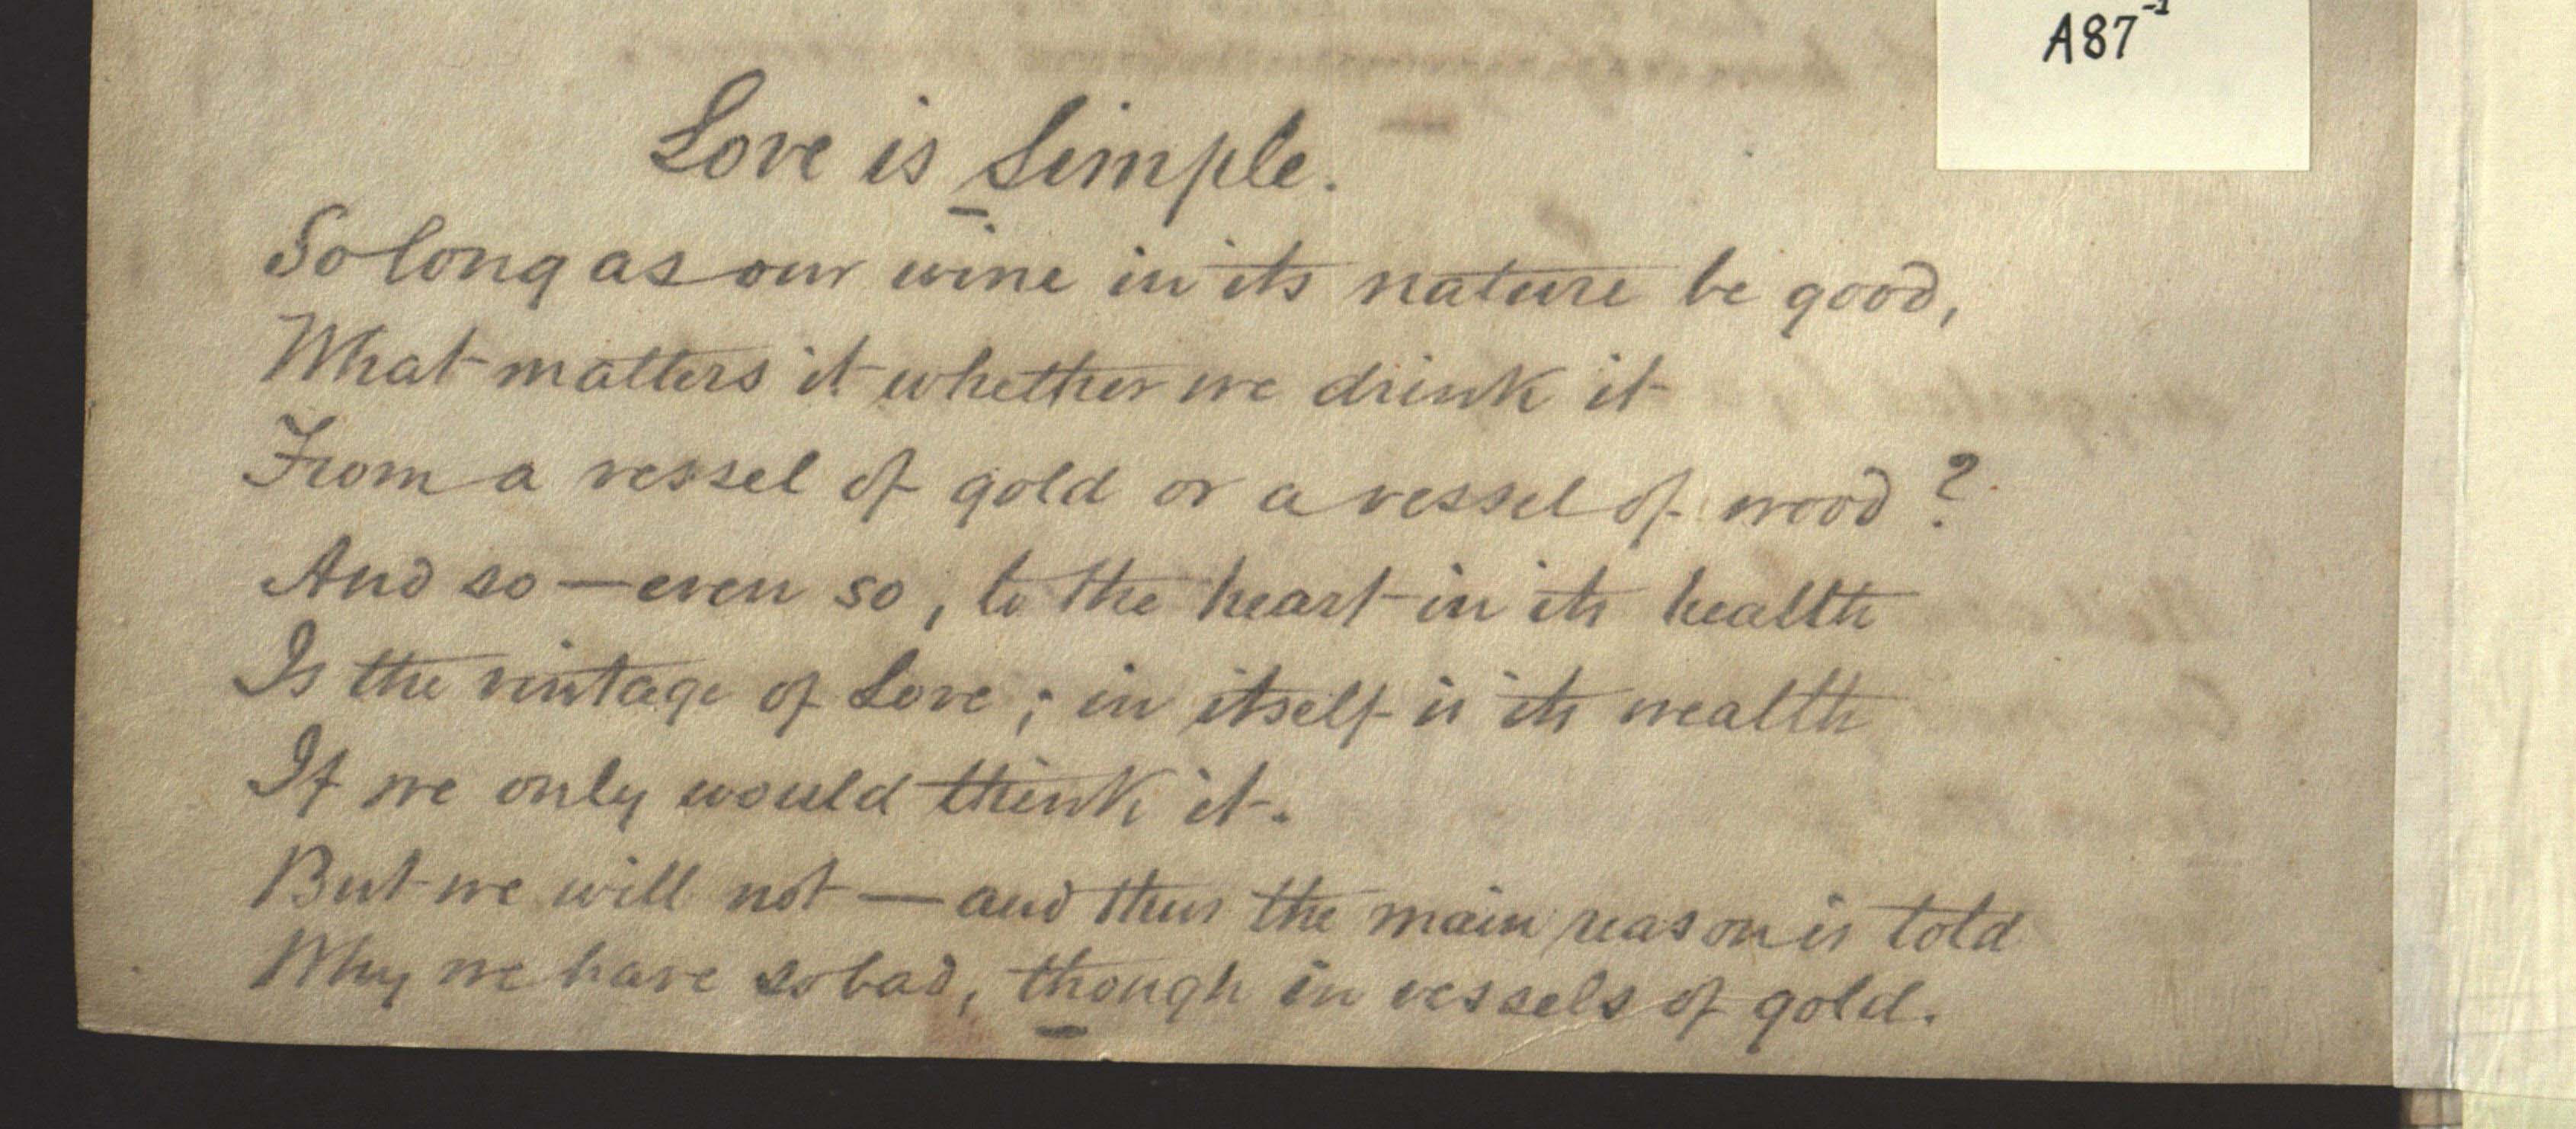 A87-1
Love is Simple.
So long as our wine in its nature be good,
What matters it whether we drink it
From a vessel of gold or a vessel of wood?
And so — even so, to the heart in its health
Is the vintage of Love; in itself is its wealth
If we only would think it.
But we will not — and thus the main reason is told
Why we have so bad, though in vessels of gold.